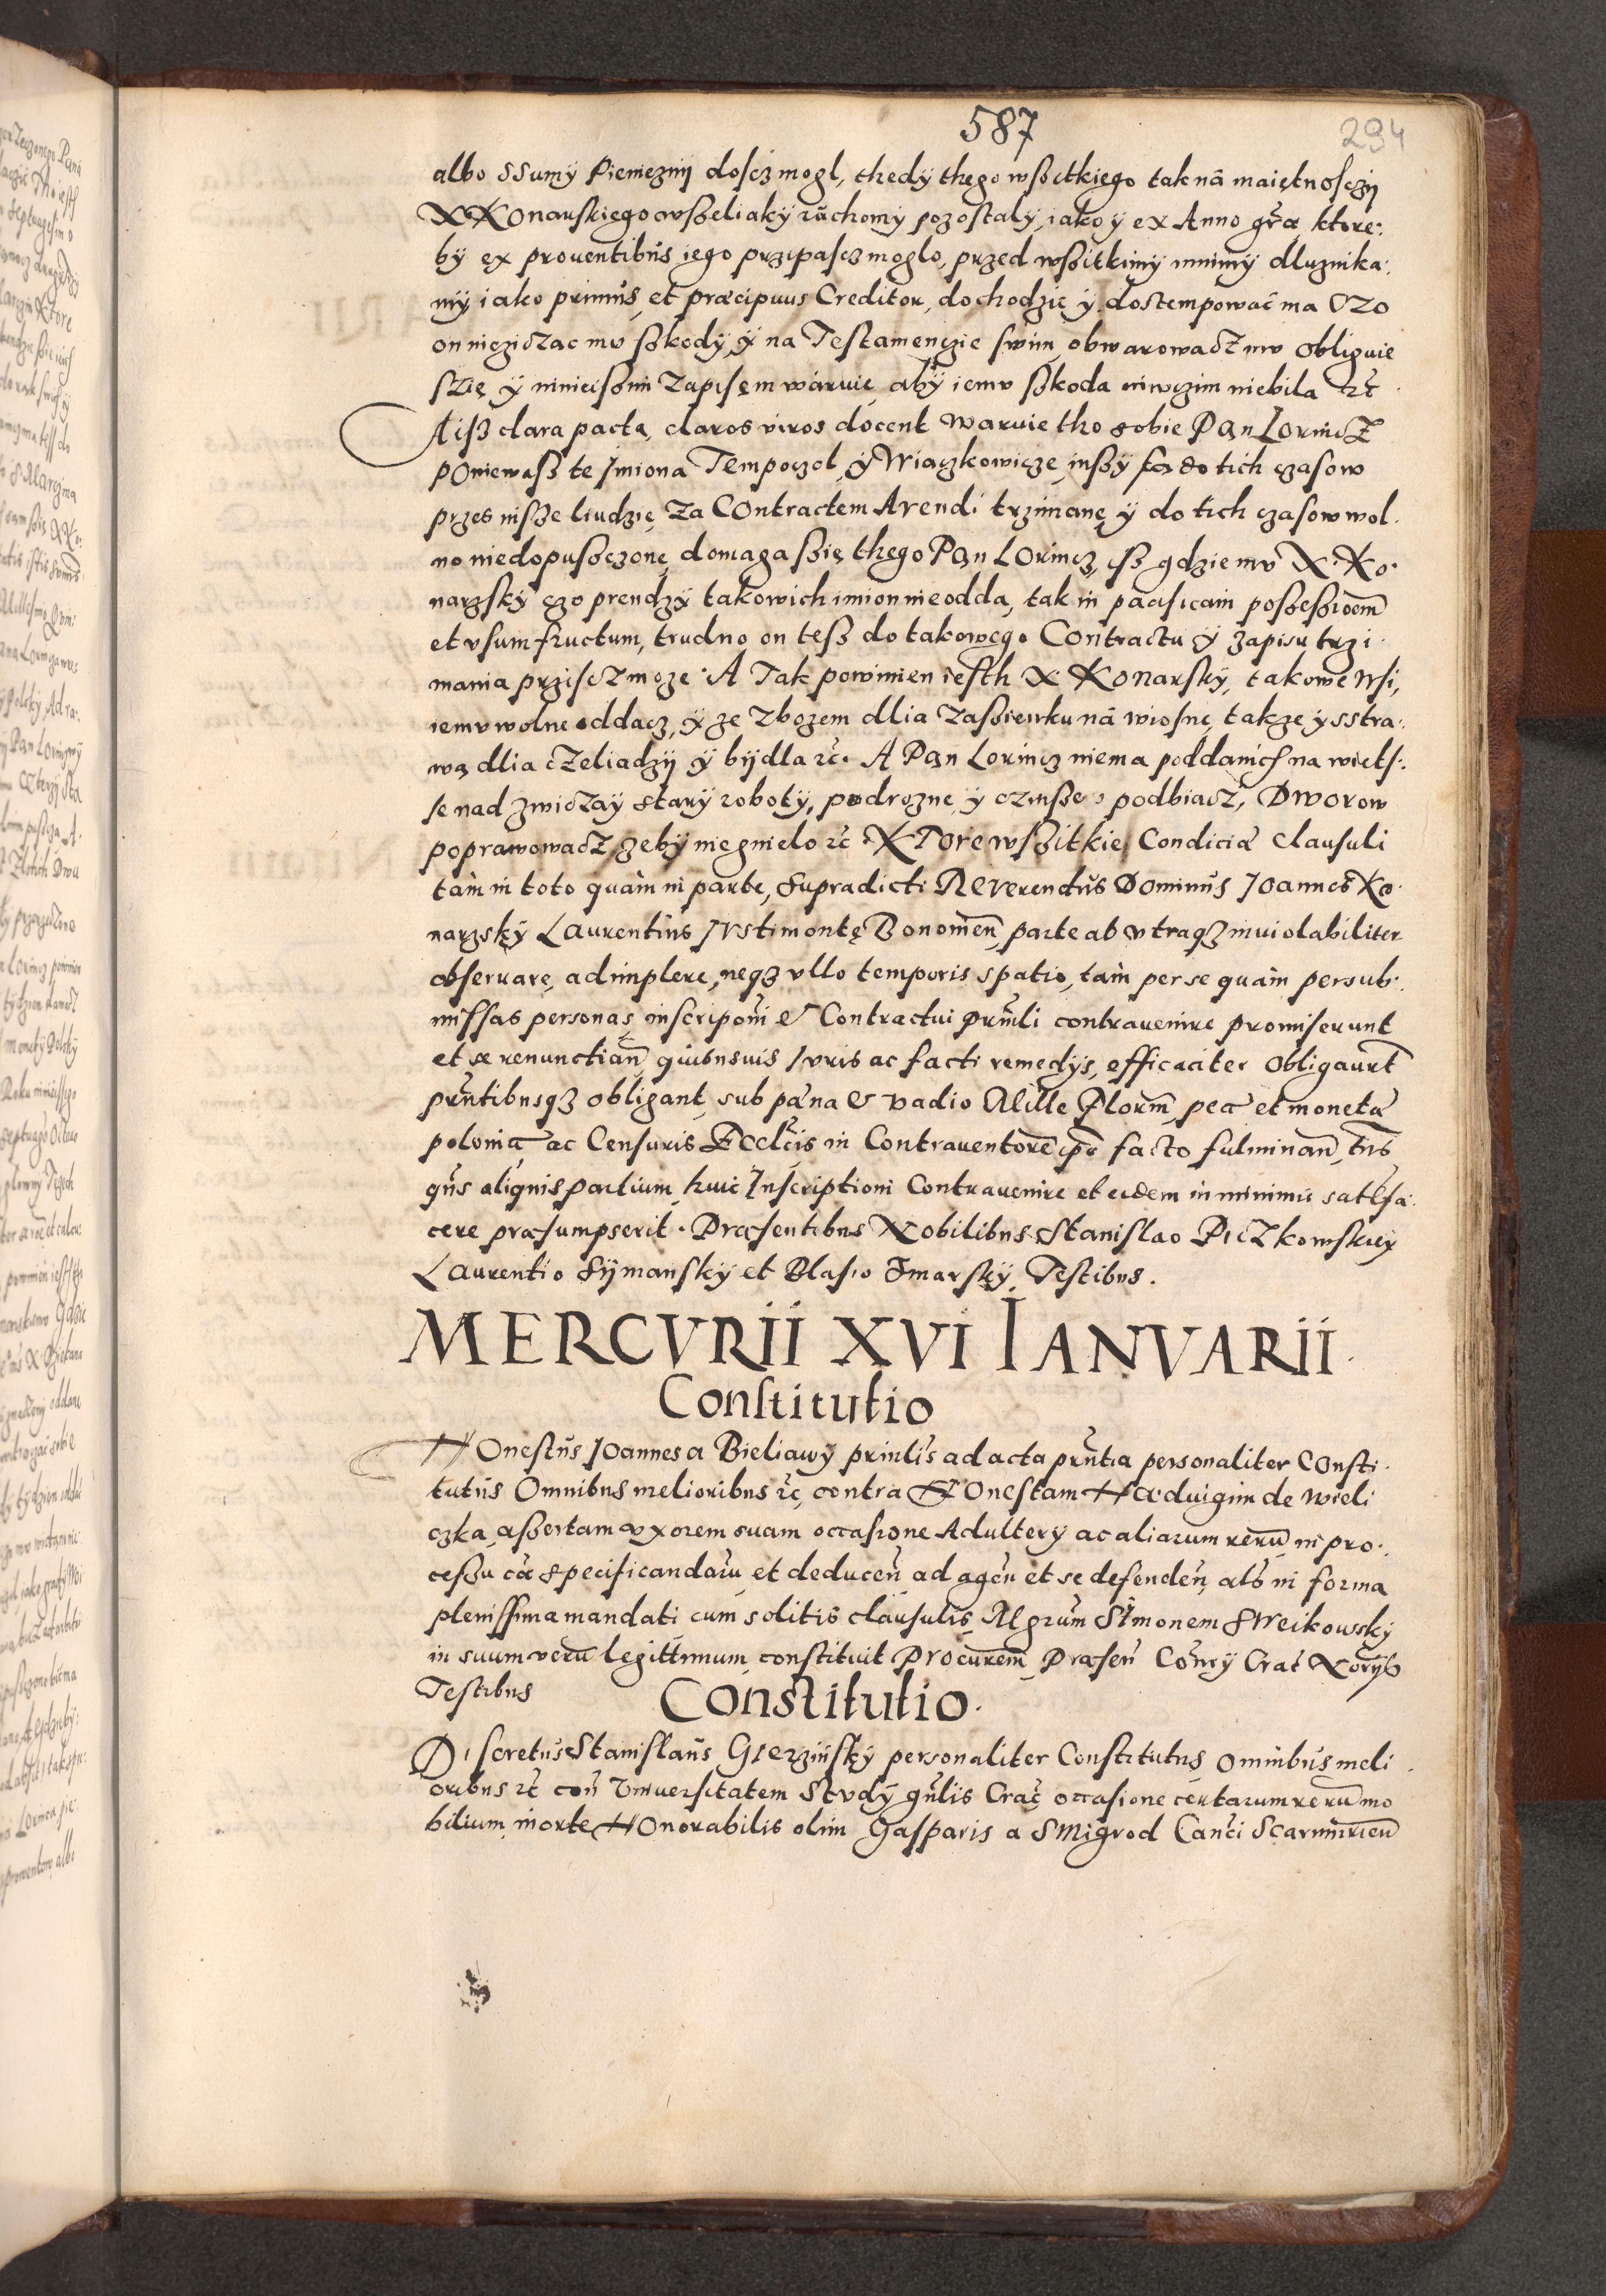 587
294
albo ssumÿ Pienięznij doſcz mogl, thedÿ thego wſzitkięgo tak nā maiętnoſczij
X Konarskiego wſzeliakÿ ruchomÿ pozostalÿ, iako ÿ ex Anno gr̄a, ktore:
bÿ ex prouentibūs iego przipaſcz moglo, przed wſzitkimÿ innimÿ dluznika:
mÿ iako primūs et præcipuus Creditor, dochodzic ÿ dostempować ma
on nięzicząc mv ſzkodÿ, ÿ na Testamenczie swim obwarowacz mv obliguie
ſzię ÿ ninieiſzim Zapisęm waruie, abÿ iemv ſzkoda wiwczim niebila ꝛc̄
Aiſz clara pacta, claros viros docent waruie tho sobie Pan Lorincz
Poniewaſz te Jmiona Tempoczol ÿ Wiaczkowicze, inſzÿ do tich czasow
przes niſze liudzie, Za Contractem Arendi trzimane, ÿ do tich czasow wol:
no niedopuſzczonę, domaga ſzię thego Pan Lorincz, iſz gdzie mv X. Ko:
narzskÿ czo prendzÿ takowich imion nie odda, tak in pacificam poſzeſzioem̄
et vsumfructum, trudno on teſz do takowego Contractu ÿ Zapisu trzi:
mania przisczmoze. A Tak powinien iesth X Konarskÿ, takowe Wsi,
iemv wolne oddacz, ÿ ze Zbozem dlia Zaſziewku nā wiosnę, takze ÿ sstra:
wą dlia cZeliadzij ÿ bijdla ꝛc̄. A Pan Lorincz niema poddanich na wietſ:
ſe nad zwiczaÿ starÿ robotÿ, podrozne ÿ czinſze podbiacz, Dworow
poprawowacz zebÿ niegnielo ꝛc̄. Ktore wſzitkie Condiciæ Clausuli
tam in toto quàm in parte, supradicti Reverendūs Dominūs Joannes Ko:
narzskÿ Laurentius Jvstimontę Bonomen̄ parte ab vtraqꝫ inuiolabiliter
obseruare, adimplere, neqꝫ vllo temporis spatio, tàm per se quàm per sub:
missas personas, inscriponi & Contractui prn̄ti contrauenire promiserunt
et se renunctian̄ quibusuis Jvris ac facti remedÿs, efficaciter obligaur̄t
prn̄tibusqꝫ obligant, sub pæna & vadio Mille Florm̄ pec̄ et monetæ
poloniæ ac Censuris Eccl̄cis in Contrauentorē ip̄o facto fulminan̄
qn̄s alignis partium huic Inscriptioni Contrauenire et eidem in minimis satisfa:
cere præsumpserit. Præsentibus Nobilibus Stanislao PicZkowskiÿ
Laurentio Sijmanskÿ et Blasio Smarskÿ Testibus.
MERCVRII XVI IANVARII.
Constitutio
Honestūs Joannes a Bieliawÿ prin̄lis ad acta prn̄tia personaliter Consti:
tutūs Omnibus melioribus ꝛc̄, contra Honestam Hæduigim de Wieli
czka, aſzertam vxorem suam occasione Adulterÿ ac aliarum rerū in pro:
ceſzu cæ specificandarū et deducen̄ ad agen̄ et se defenden̄, als̄ in forma
plenissima mandati cum solitis clausulis, Mgrūm Simonem Sweikowskÿ
in suum verū legittimum constituit Procurem̄ Præsen̄ Con̄rÿ Crac̄ Norÿs
Testibus
Constitutio.
Discretus Stanislaūs Gierzinskÿ personaliter Constitutus Omnibus meli
oribus ꝛc̄ con̄ Vniuersitatem Stvdÿ gn̄lis Crac̄ occasione certarum rerū mo
bilium morte Honorabilis olim Gasparis a Smigrod Can̄ci Scarmirien̄